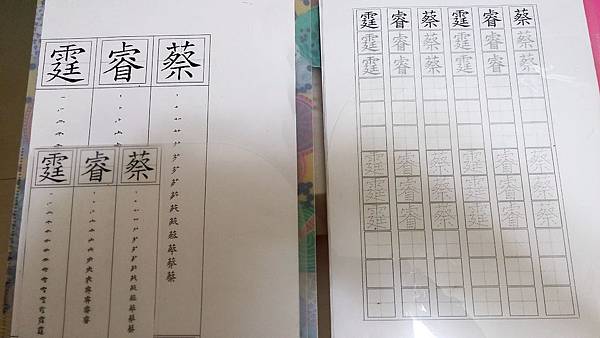 蔡睿霆
蔡睿霆
蔡睿霆蔡睿霆
蔡睿霆蔡睿霆
蔡睿霆蔡睿霆
蔡睿霆蔡睿霆
蔡睿霆蔡睿霆
蔡睿霆蔡睿霆